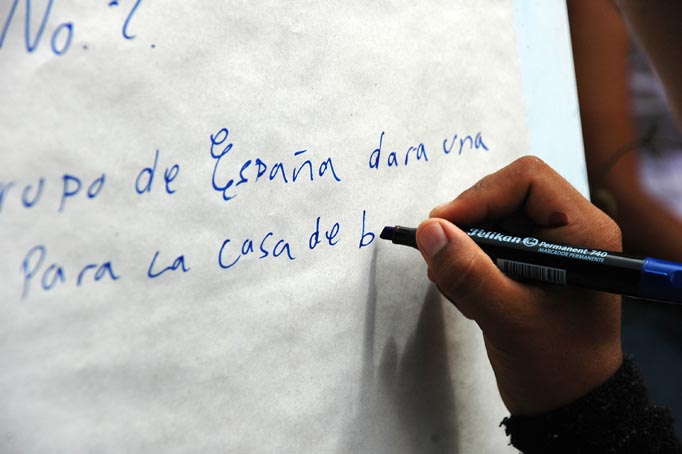 No. 2.
rupo de España dara una
Para la casa de b
Pelikan Permanent 740
MARCADOR PERMANENTE